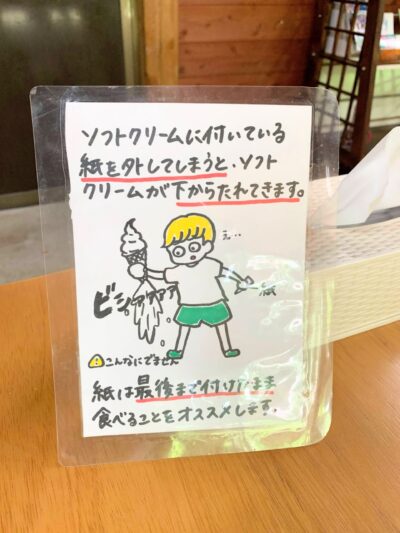 ソフトクリームに付いている
紙を外してしまうと、ソフト
クリームが下からたれてきます。
え…
紙
ビシャァァァァ
こんなにでません
紙は最後まで付けたまま
食べることをオススメします。